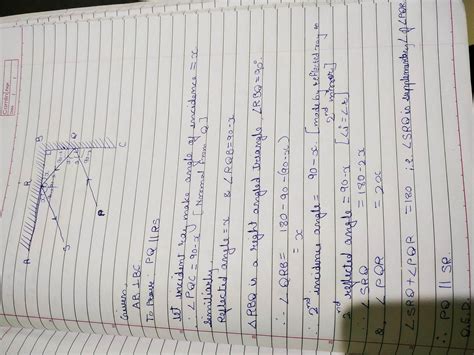 Camlin
Date
A
R
B
Q
C
S
P
Given:
AB ⊥ BC
To Prove: PQ || RS
let incident ray make angle of incidence = x
∴ ∠PQC = 90-x [Normal from Q]
Similarly,
Reflected angle = x & ∠RQB = 90-x
△RBQ is a right angled triangle. ∠RBQ = 90°
∴ ∠QRB = 180 - 90 - (90-x)
= x
∴ 2nd incidence angle = 90-x [made by reflected ray to 2nd mirror]
2nd reflected angle = 90-x [∠i = ∠r]
∴ ∠SRQ = 180-2x
& ∠PQR = 2x
∠SRQ + ∠PQR = 180 i.e. ∠SRQ is supplementary ∠ of ∠PQR
∴ PQ || SR
Q.E.D.